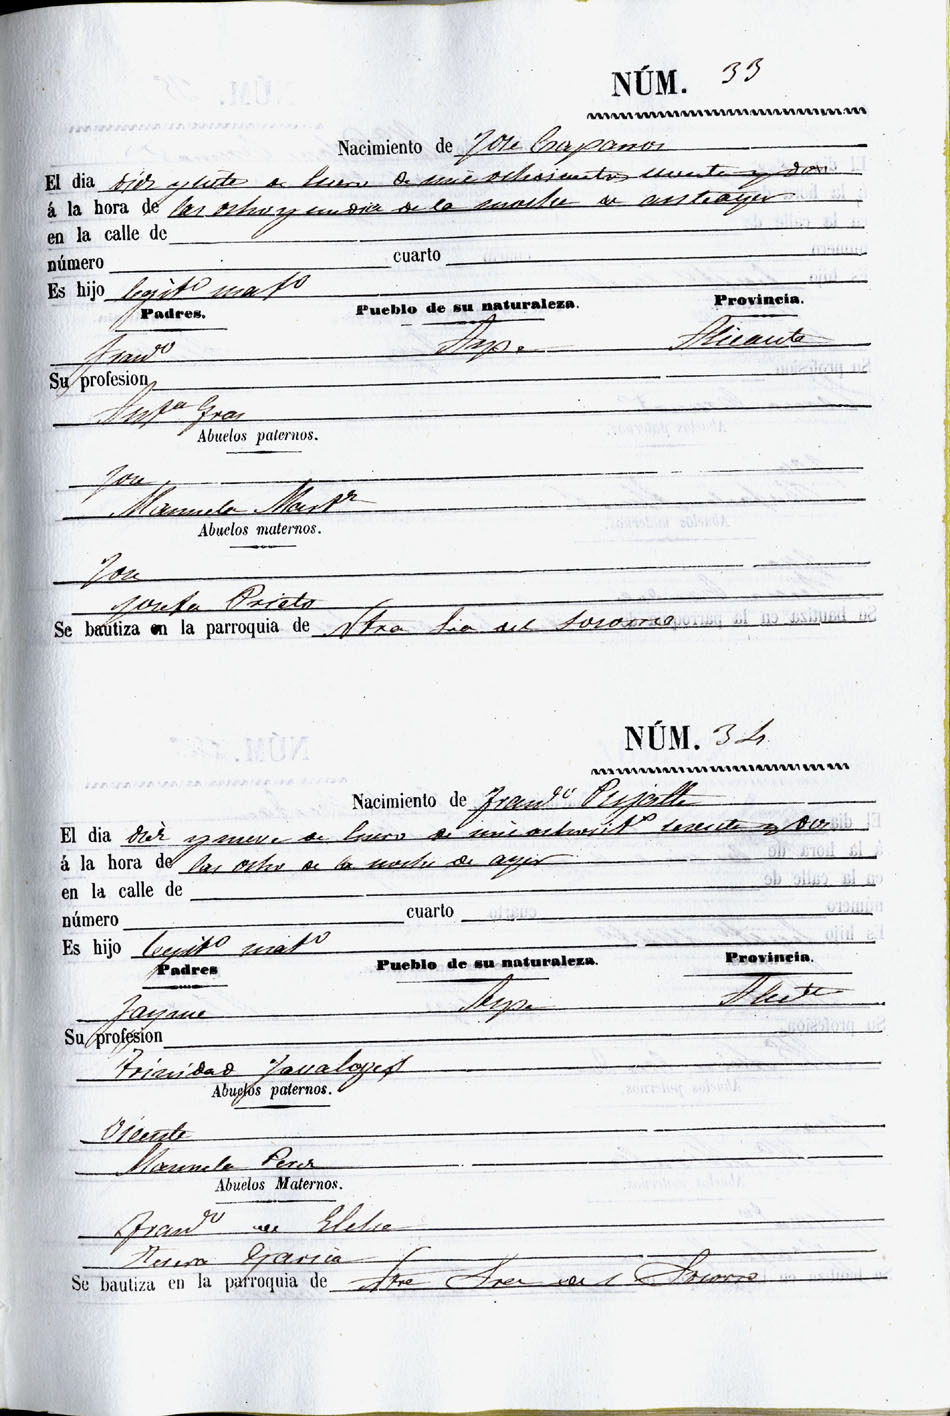 NÚM. 33
Nacimiento de Jose
El dia diez y siete de Enero de mil ochocientos sesenta y dos
á la hora de las ocho y media de la noche de anteayer
en la calle de
número cuarto
Es hijo legito mato
Padres. Pueblo de su naturaleza. Provincia.
Franco Aspe Alicante
Su profesion
Gras
Abuelos paternos.
Jose
Manuela Martz
Abuelos maternos.
Jose
Josefa Prieto
Se bautiza en la parroquia de Ntra Sra del Socorro
NÚM. 34
Nacimiento de Franco
El dia diez y nueve de Enero de mil ochocitos sesenta y dos
á la hora de las ocho de la noche de ayer
en la calle de
número cuarto
Es hijo legito mato
Padres Pueblo de su naturaleza. Provincia.
Jayme Aspe Alicte
Su profesion
Trinidad
Abuelos paternos.
Vicente
Manuela Perez
Abuelos Maternos.
Franco de Elche
Teresa Garcia
Se bautiza en la parroquia de Ntra Sra del Socorro